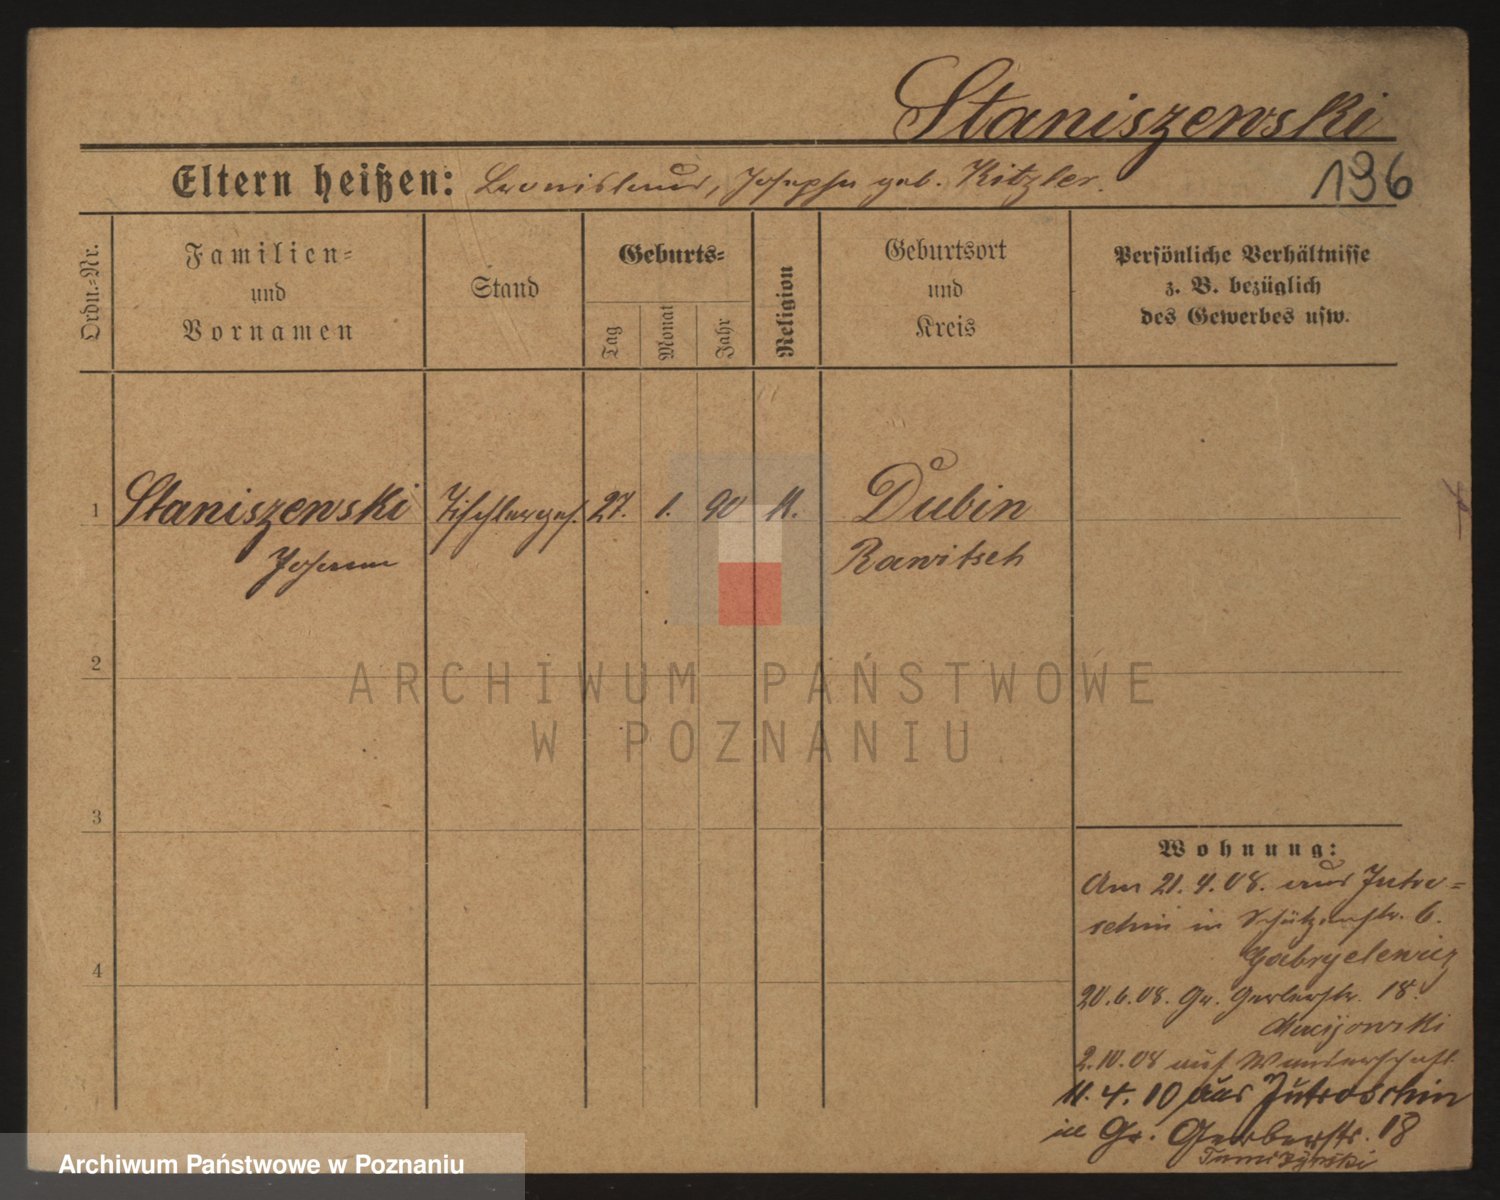 Staniszewski
136
Eltern heißen: Bronislaus, Josepha geb. Kitzler.
Ordn.-Nr.
Familien-
und
Vornamen
Stand
Geburts-
Tag
Monat
Jahr
Religion
Geburtsort
und
Kreis
Persönliche Verhältnisse
z. B. bezüglich
des Gewerbes usw.
1 Staniszewski Tischlerges. 27. 1. 90 k. Dubin
Johann Rawitsch
2
3
4
ARCHIWUM PAŃSTWOWE
W POZNANIU
Wohnung:
Am 21.4.08. aus Jutro=
schin in Schützenstr. 6.
Gabryelewicz
20.6.08. Gr. Gerberstr. 18.
2.10.08 auf Wanderschaft
11.4.10 aus Jutroschin
in Gr. Gerberstr. 18
Archiwum Państwowe w Poznaniu